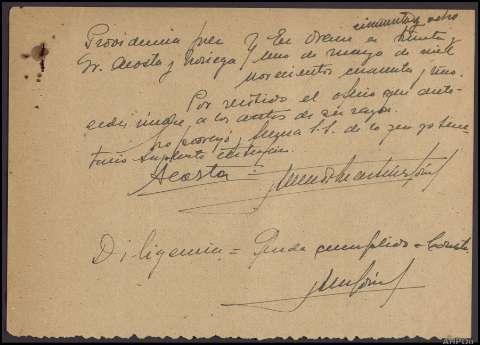 cincuenta y ocho
Providencia Juez } En Orense a treinta y
Sr. Acosta y Noriega } uno de mayo de mil
novecientos cincuenta y uno.
Por recibido el oficio que ante-
cede; únase a los autos de su razón.
Lo proveyó, firma S.S. de lo que yo Secre-
tario suplente certifico.
Acosta
Diligencia = Queda cumplido = Conste
AHPOu